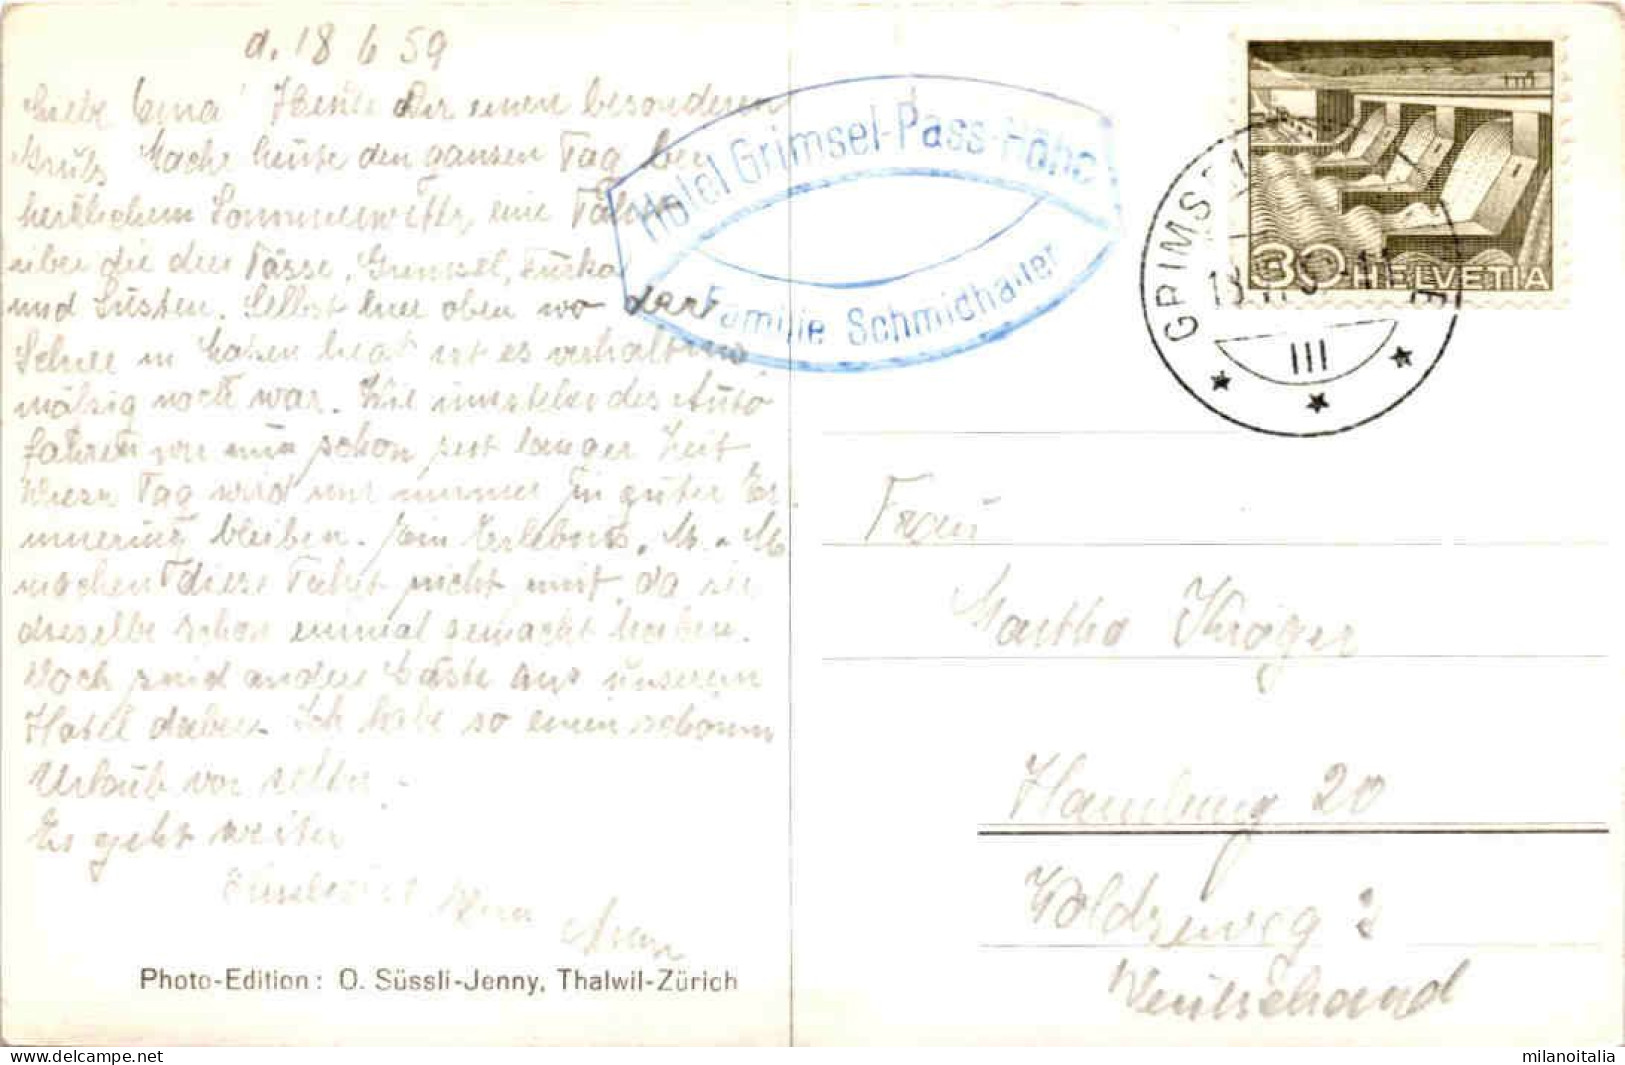 d. 18 6 59
Liebe Erna! Heute Dir einen besonderen
Gruß. Mache heute den ganzen Tag bei
herrlichem Sommerwetter, eine Fahrt
über die drei Pässe, Grimsel, Furka
und Susten. Selbst hier oben wo der
Schnee in Massen liegt ist es verhältnis
mäßig noch warm.
fahren wir nun schon seit langer Zeit
Dieser Tag wird mir immer in guter Er
innerung bleiben. Ein Erlebnis. M. u. M.
machen diese Fahrt nicht mit, da sie
dieselbe schon einmal gemacht haben.
Doch sind andere Gäste aus unserem
Hotel dabei. Ich habe so einen schönen
Urlaub
Es geht weiter
Photo-Edition: O. Süssli-Jenny, Thalwil-Zürich
Hotel Grimsel-Pass-Höhe
Familie Schmidhalter
GRIMSEL
III
30 HELVETIA
Frau
Martha Kröger
Hamburg 20
Deutschland
milanoitalia